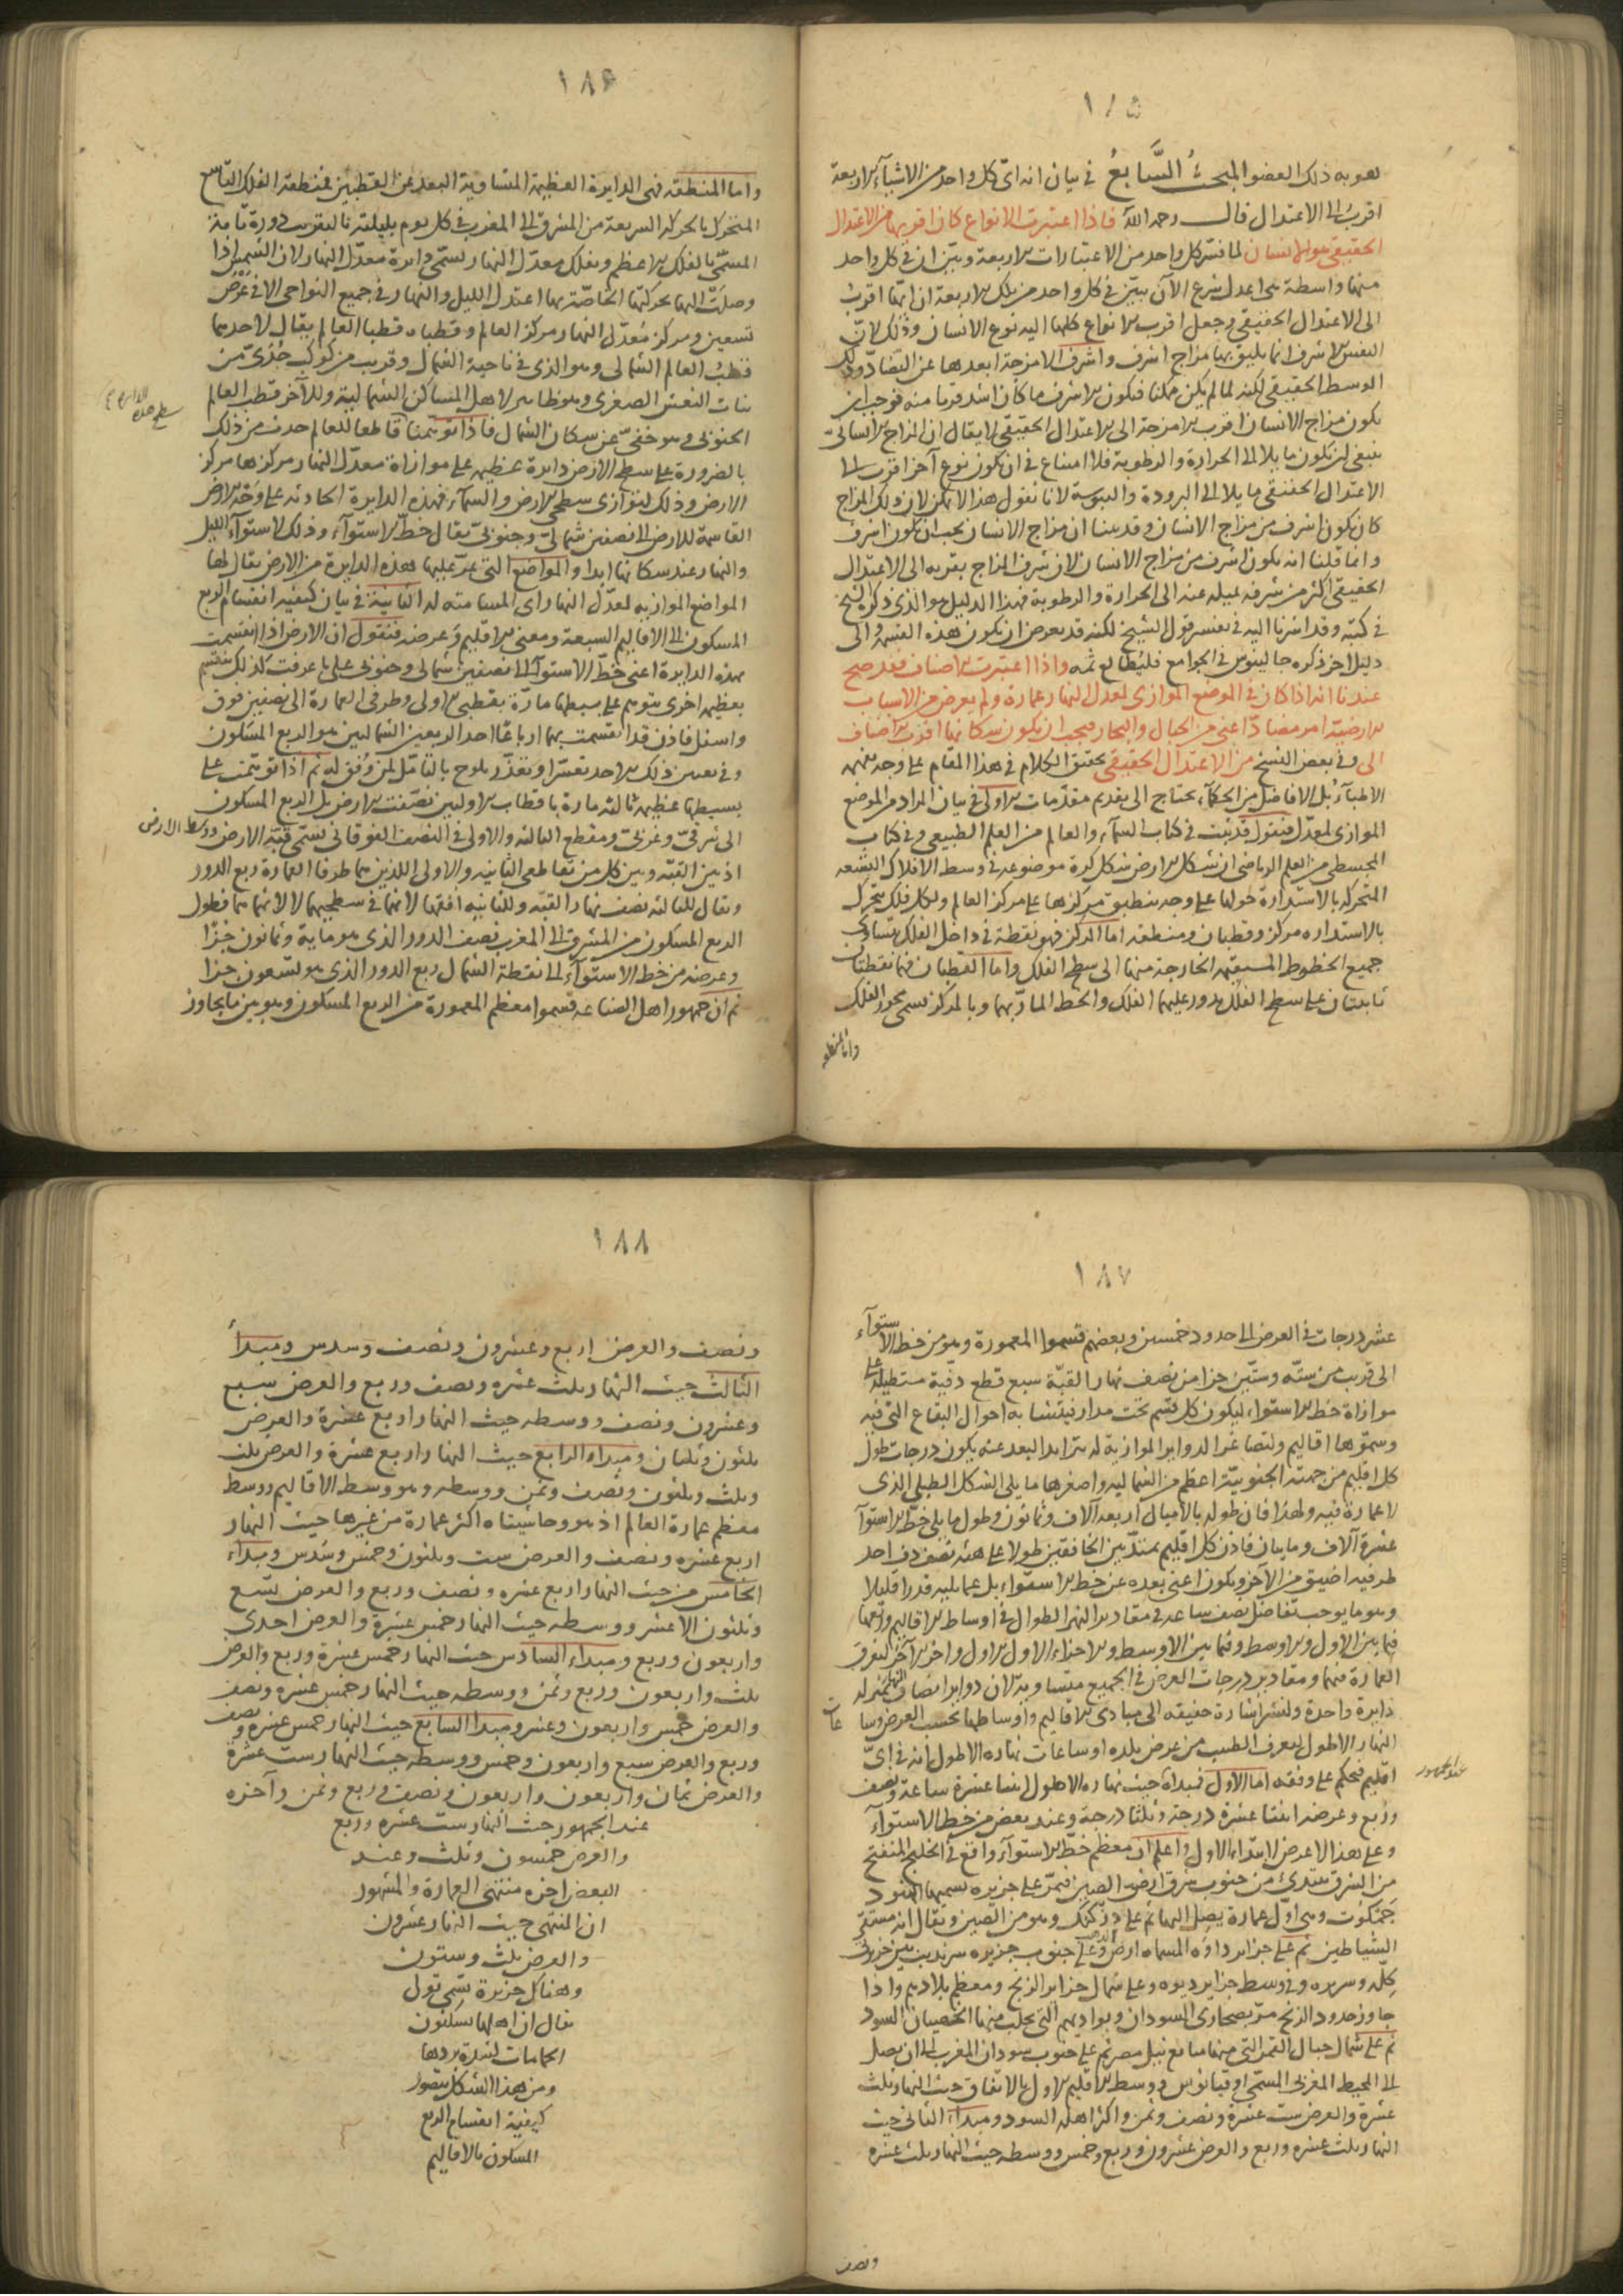 ١٨٥
هو به ذلك العضو المبحث السابع في بيان انه اى كل واحد من الاشياء الاربعة
اقرب الى الاعتدال قال رحمه الله فاذا اعتبرت الانواع كان اقربها من الاعتدال
الحقيقي هو الانسان لما فسر كل واحد من الاعتبارات الاربعة وبين ان في كل واحد
منها واسطة هى اعدل شرع الآن يبين في كل واحد من تلك الاربعة ان ايها اقرب
الى الاعتدال الحقيقي وجعل اقرب الانواع كلها اليه نوع الانسان وذلك لان
النفس الاشرف انما يليق بها مزاج اشرف واشرف الامزجة ابعدها عن التضاد وذلك
الوسط الحقيقي لكنه لما لم يكن ممكنا فيكون الاشرف ما كان اشد قربا منه فوجب ان
يكون مزاج الانسان اقرب الامزجة الى الاعتدال الحقيقي لا يقال ان المزاج الانسانى
ينبغى ان يكون مايلا الى الحرارة والرطوبة فلا امتناع في ان يكون نوع آخر اقرب الى
الاعتدال الحقيقي مايلا الى البرودة واليبوسة لانا نقول هذا لا يمكن لان ذلك المزاج
كان يكون اشرف من مزاج الانسان وقد بينا ان مزاج الانسان يجب ان يكون اشرف
وانما قلنا انه يكون اشرف من مزاج الانسان لان شرف المزاج بقربه الى الاعتدال
الحقيقي اكثر من شرفه بميله عنه الى الحرارة والرطوبة فهذا الدليل هو الذى ذكره الشيخ
في كتبه وقد اشرنا اليه في تفسير قول الشيخ لكنه قد يعرض ان يكون هذه القسمة والى
دليل اخر ذكره جالينوس في الجوامع فليطالع ثمه واذا اعتبرت الاصناف فقد صح
عندنا انه اذا كان في الموضع الموازى لمعدل النهار عمارة ولم يعرض من الاسباب
الارضية امر مضاد اعنى من الجبال والبحار فيجب ان يكون سكانها اقرب الاصناف
الى وفي بعض النسخ من الاعتدال الحقيقي تحقيق الكلام في هذا المقام على وجه يفهمه
الاطباء بل الافاضل من الحكماء يحتاج الى تقديم مقدمات الاولى في بيان المراد من الموضع
الموازى لمعدل فنقول قد ثبت في كتاب السماء والعالم من العلم الطبيعى وفي كتاب
المجسطى من العلم الرياضى ان شكل الارض شكل كرة موضوعة في وسط الافلاك التسعة
المتحركة بالاستدارة حولها على وجه ينطبق مركزها على مركز العالم ولكل فلك يتحرك
بالاستدارة مركز وقطبان ومنطقه اما المركز فهو نقطة في داخل الفلك يتساوى
جميع الخطوط المستقيمة الخارجة منها الى سطح الفلك واما القطبان فهما نقطتان
ثابتتان على سطح الفلك يدور عليهما الفلك والخط المار بهما وبالمركز يسمى محور الفلك
واما المنطقه
١٨۶
واما المنطقه فهى الدايرة العظيمة المتساوية البعد عن القطبين فمنطقة الفلك التاسع
المتحرك بالحركة السريعة من المشرق الى المغرب في كل يوم بليلته بالتقريب دورة تامة
المسمى بالفلك الاعظم وبفلك معدل النهار يسمى دايرة معدل النهار لان الشمس اذا
وصلت اليها بحركتها الخاصة بها اعتدل الليل والنهار في جميع النواحى الا في عرض
تسعين ومركز معدل النهار مركز العالم وقطباه قطبا العالم يقال لاحدهما
قطب العالم الشمالى وهو الذى في ناحية الشمال وقريب من كوكب جدى من
بنات النعش الصغرى وهو ظاهر لاهل المساكن الشمالية وللآخر قطب العالم
الجنوبى وهو خفى عن سكان الشمال فاذا توهمنا قاطعا للعالم حدث من ذلك
بالضرورة على سطح الارض دايرة عظيمة على موازاة معدل النهار مركزها مركز
الارض وذلك لتوازى سطحى الارض والسماء فهذه الدايرة الحادثة على وجه الارض
القاسمة للارض الى نصفين شمالى وجنوبى يقال خط الاستواء وذلك لاستواء الليل
والنهار عند سكانها ابدا والمواضع التى تمر عليها هذه الدايرة من الارض يقال لها
المواضع الموازية لمعدل النهار اى المسامته له الثانية في بيان كيفية انقسام الربع
المسكون الى الاقاليم السبعة ومعنى الاقليم وعرضه فنقول ان الارض اذا انقسمت
بهذه الدايرة اعنى خط الاستواء الى نصفين شمالى وجنوبى على ما عرفت كذلك ينقسم
بعظيمة اخرى يتوهم على بسيطها مارة بقطبى الاولى وطرفى العمارة الى نصفين فوق
واسفل فاذن قد انقسمت بهما ارباعا احد الربعين الشماليين هو الربع المسكون
وفي تعيين ذلك الاحد تعسر او تعذر يلوح بالتامل لمن وفق له ثم اذا توهمت على
بسيطها عظيمة ثالثة مارة باقطاب الاوليين نصفت الارض بل الربع المسكون
الى شرقى وغربى ومقطع الثالثة والاولى في النصف الفوقانى يسمى قبة الارض ووسط الارض
اذ بين القبة وبين كل من تقاطعى الثانية والاولى اللذين هما طرفا العمارة ربع الدور
ويقال للثالثة نصف نهار القبة وللثانية افقها لانها في سطحيهما لا لانها هما فطول
الربع المسكون من المشرق الى المغرب نصف الدور الذى هو ماية وثمانون جزا
وعرضه من خط الاستواء الى نقطة الشمال ربع الدور الذى هو تسعون جزا
ثم ان جمهور اهل الصناعة قسموا معظم المعمورة من الربع المسكون وهو بين ما يجاوز
سطح هذه الدايرة
١٨٧
عشر درجات في العرض الى حدود خمسين وبعضهم قسموا المعمورة وهو من خط الاستواء
الى قريب من ستة وستين جزا من نصف نهار القبة سبع قطع دقيقة مستطيلة على
موازاة خط الاستواء، ليكون كل قسم تحت مدار فيتشابه احوال البقاع التى فيه
وسموها اقاليم ولتصاغر الدواير الموازية له بتزايد البعد عنه يكون درجات طول
كل اقليم من جهته الجنوبية اعظم من الشمالية واصغرها ما يلى الشكل الطبلى الذى
لا عمارة فيه ولهذا فان طوله بالاميال اربعة آلاف وثمانون وطول ما يلى خط الاستوآ
عشرة آلاف ومايتان فاذن كل اقليم يمتد بين الخافقين طولا على هيئة نصف دف احد
طرفيه اضيق من الآخر ويكون اعنى بعده عن خط الاستواء بل عما يليه قدرا قليلا
وهو ما يوجب تفاضل نصف ساعة في مقادير النهر الطوال في اوساط الاقاليم وربعها
فيما بين الاول والاوسط وفيما بين الاوسط والاخر اعنى الاول الاول واخر الآخر لتفرق
العمارة فيهما ومقادير درجات العرض في الجميع متساوية لان دواير انصاف النهار بمنزلة
دايرة واحدة ولنشر اشارة خفيفة الى مبادى الاقاليم واوساطها بحسب العرض وساعات
النهار الاطول ليعرف الطبيب من عرض بلده او ساعات نهاره الاطول انه في اى
اقليم فيحكم على وفقه اما الاول فمبداه حيث نهاره الاطول اثنتا عشرة ساعة ونصف
وربع وعرضه اثنتا عشرة درجة وثلثا درجة وعند بعض من خط الاستواء
وعلى هذا لا عرض لابتداء الاول واعلم ان معظم خط الاستواء واقع في الخليج المنفتح
من الشرق يبتدئ من جنوب شرق ارض الصين فيمر على جزيرة يسميها الهنود
جمكوت وهى اول عمارة يصل اليها ثم على دزكنك وهو من الصين ويقال انه مستقر
الشياطين ثم على جزاير داوه المسماه ارض الذهب وعلى جنوب جزيرة سرنديب بين جزيرتى
كله وسريره وفي وسط جزاير ديوه وعلى شمال جزاير الزنج ومعظم بلادهم واذا
جاوز حدود الزنج مر بصحارى السودان وبواديهم التى يجلب منها الخصيان السود
ثم على شمال جبال القمر التى منها منابع نيل مصر ثم على جنوب سودان المغرب الى ان يصل
الى المحيط المغربى المسمى اوقيانوس ووسط الاقليم الاول بالاتفاق حيث النهار ثلث
عشرة والعرض ست عشرة ونصف وثمن واكثر اهله السود ومبداء الثانى حيث
النهار ثلث عشره وربع والعرض عشرون وربع وخمس ووسطه حيث النهار ثلث عشره
عند الجمهور
ونصف
١٨٨
ونصف والعرض اربع وعشرون ونصف وسدس ومبدأ
الثالث حيث النهار ثلث عشره ونصف وربع والعرض سبع
وعشرون ونصف ووسطه حيث النهار اربع عشرة والعرض
ثلثون وثلثان ومبداء الرابع حيث النهار اربع عشرة والعرض ثلث
وثلث وثلثون ونصف وثمن ووسطه وهو وسط الاقاليم ووسط
معظم عمارة العالم اذ هو وحاشيتاه اكثر عمارة من غيرها حيث النهار
اربع عشره ونصف والعرض ست وثلثون وخمس وسدس ومبداء
الخامس من حيث النهار اربع عشره ونصف وربع والعرض تسع
وثلثون الا عشر ووسطه حيث النهار خمس عشرة والعرض احدى
واربعون وربع ومبداء السادس حيث النهار خمس عشرة وربع والعرض
ثلث واربعون وربع وثمن ووسطه حيث النهار خمس عشره ونصف
والعرض خمس واربعون وعشر ومبدا السابع حيث النهار خمس عشره ونصف
وربع والعرض سبع واربعون وخمس ووسطه حيث النهار ست عشرة
والعرض ثمان واربعون واربعون ونصف وربع وثمن وآخره
عند الجمهور حيث النهار ست عشره وربع
والعرض خمسون وثلث وعند
البعض اخره منتهى العمارة والمشهور
ان المنتهى حيث النهار عشرون
والعرض ثلث وستون
وهناك جزيرة تسمى تول
يقال ان اهلها يسكنون
الحمامات لشدة بردها
ومن هذا الشكل يتصور
كيفية انقسام الربع
المسكون بالاقاليم